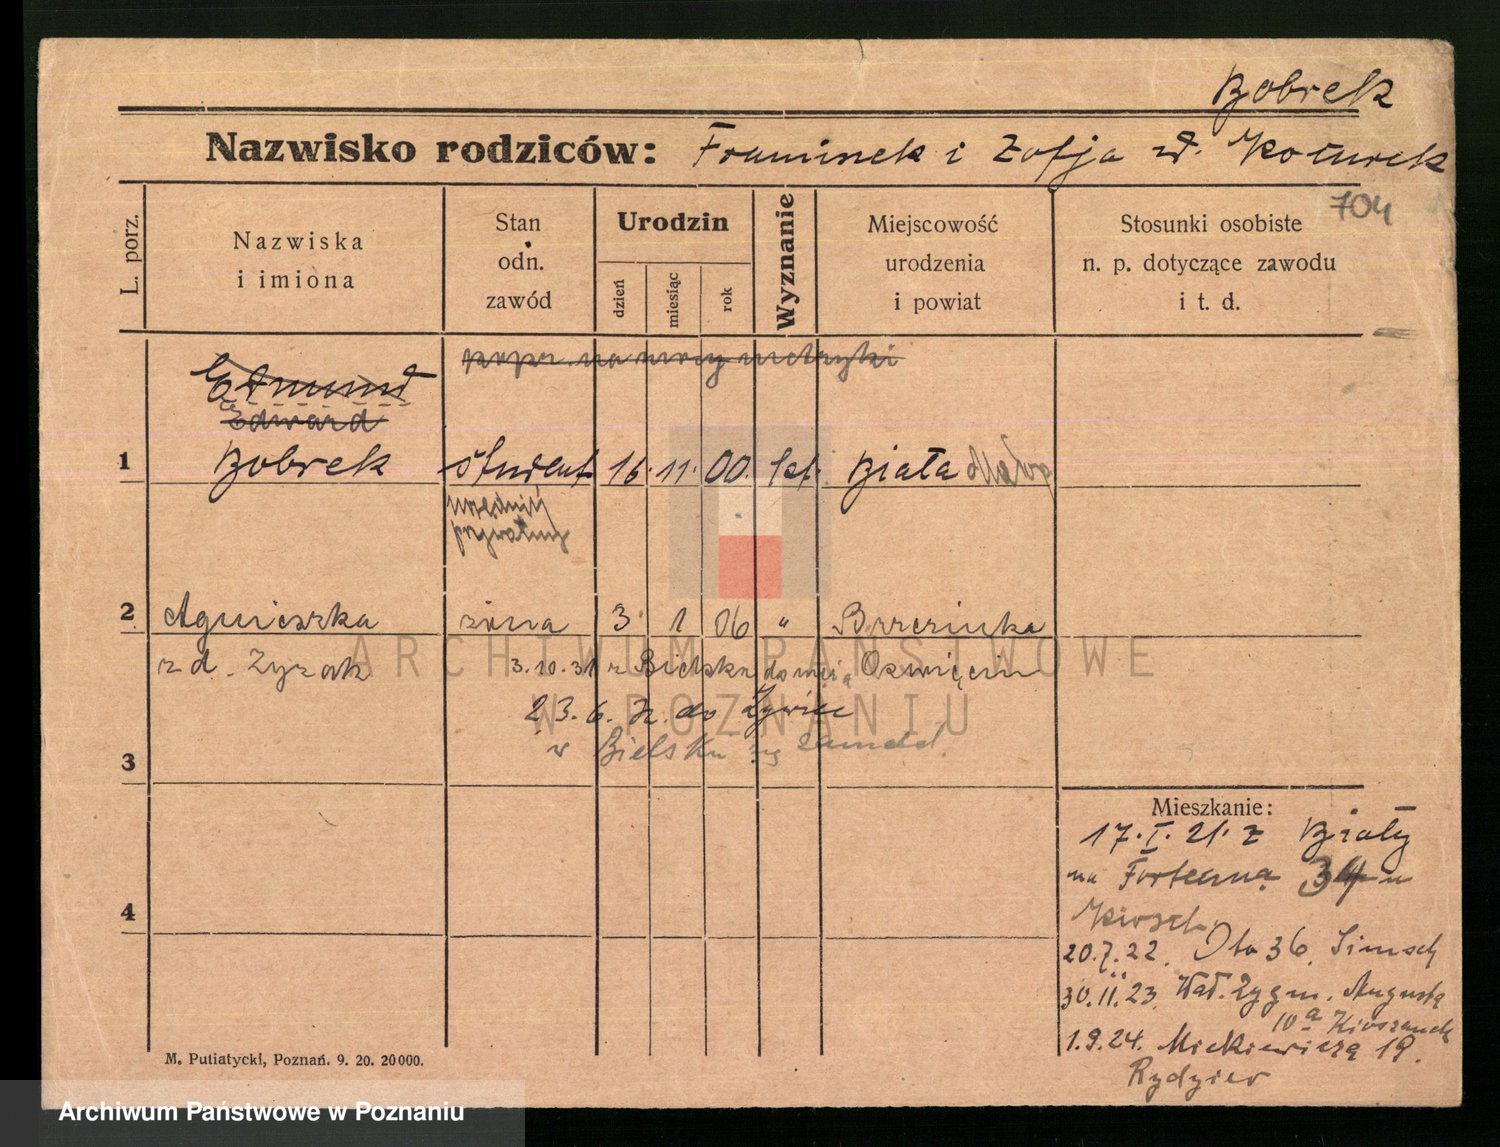 Bobrek
Nazwisko rodziców: Franciszek i Zofja zd. Koturek
704
L. porz.
Nazwiska i imiona
Stan odn. zawód
Urodzin
dzień
miesiąc
rok
Wyznanie
Miejscowość urodzenia i powiat
Stosunki osobiste n. p. dotyczące zawodu i t. d.
popr. na mocy metryki
Edmund
Edward
1 Bobrek student 16. 11. 00. kat. Biała
urzędnik
prywatny
2 Agnieszka żona 3 1 06 " Brzezinka
zd. Zyzak 3.10.31 z Bielska do męża Oświęcim
23.6. do Żywiec
w Bielsku
3
Mieszkanie:
17.I.21. z Biały
na Forteczną 34 u
4
20.7.22. 36.
30.11.23. Wał. Zygm. Augusta
10a
1.9.24. Mickiewicza 19.
M. Putiatycki, Poznań. 9. 20. 20000.
ARCHIWUM PAŃSTWOWE
W POZNANIU
Archiwum Państwowe w Poznaniu